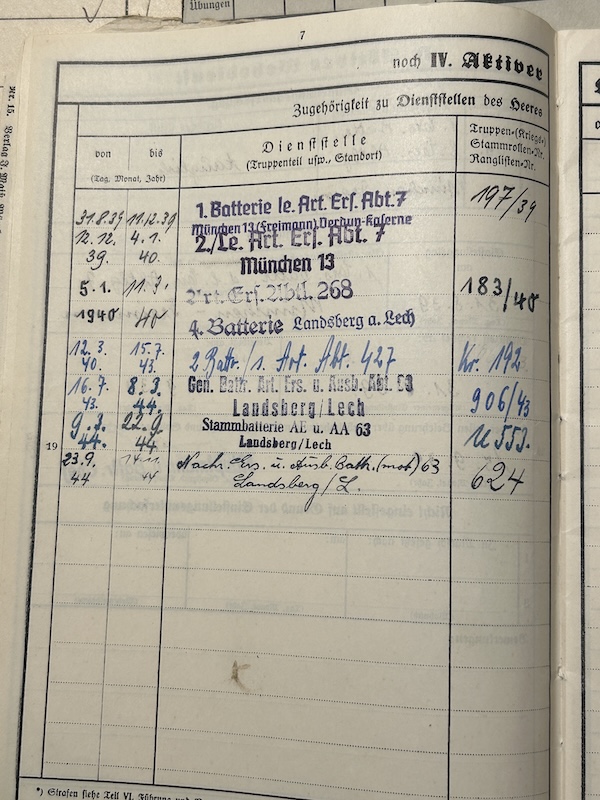 Übungen
7
noch IV. Aktiver
Zugehörigkeit zu Dienststellen des Heeres
von bis
(Tag, Monat, Jahr)
Dienststelle
(Truppenteil usw., Standort)
Truppen-(Kriegs-)
Stammrollen-Nr.
Ranglisten-Nr.
31.8.39 11.12.39 1. Batterie le. Art. Ers. Abt. 7 197/39
München 13 (Freimann) Verdun-Kaserne
12.12. 39. 4.1. 40. 2./Le. Art. Ers. Abt. 7
München 13
5.1. 1940 11.3. 40 Art. Ers. Abtl. 268 183/40
4. Batterie Landsberg a. Lech
12.3. 40. 15.7. 43. 2 Battr./s. Art. Abt. 427 Kr. 192
16.7. 43. 8.3. 44. Gen. Battr. Art. Ers. u. Ausb. Abt. 63 906/43
Landsberg/Lech
9.3. 44. 22.9. 44 Stammbatterie AE u. AA 63 U 553.
Landsberg/Lech
19
23.9. 44 Nachr. Ers. u. Ausb. Batt. (mot) 63 624
Landsberg/L.
*) Strafen siehe Teil VI, Führung
Nr. 15. Verlag